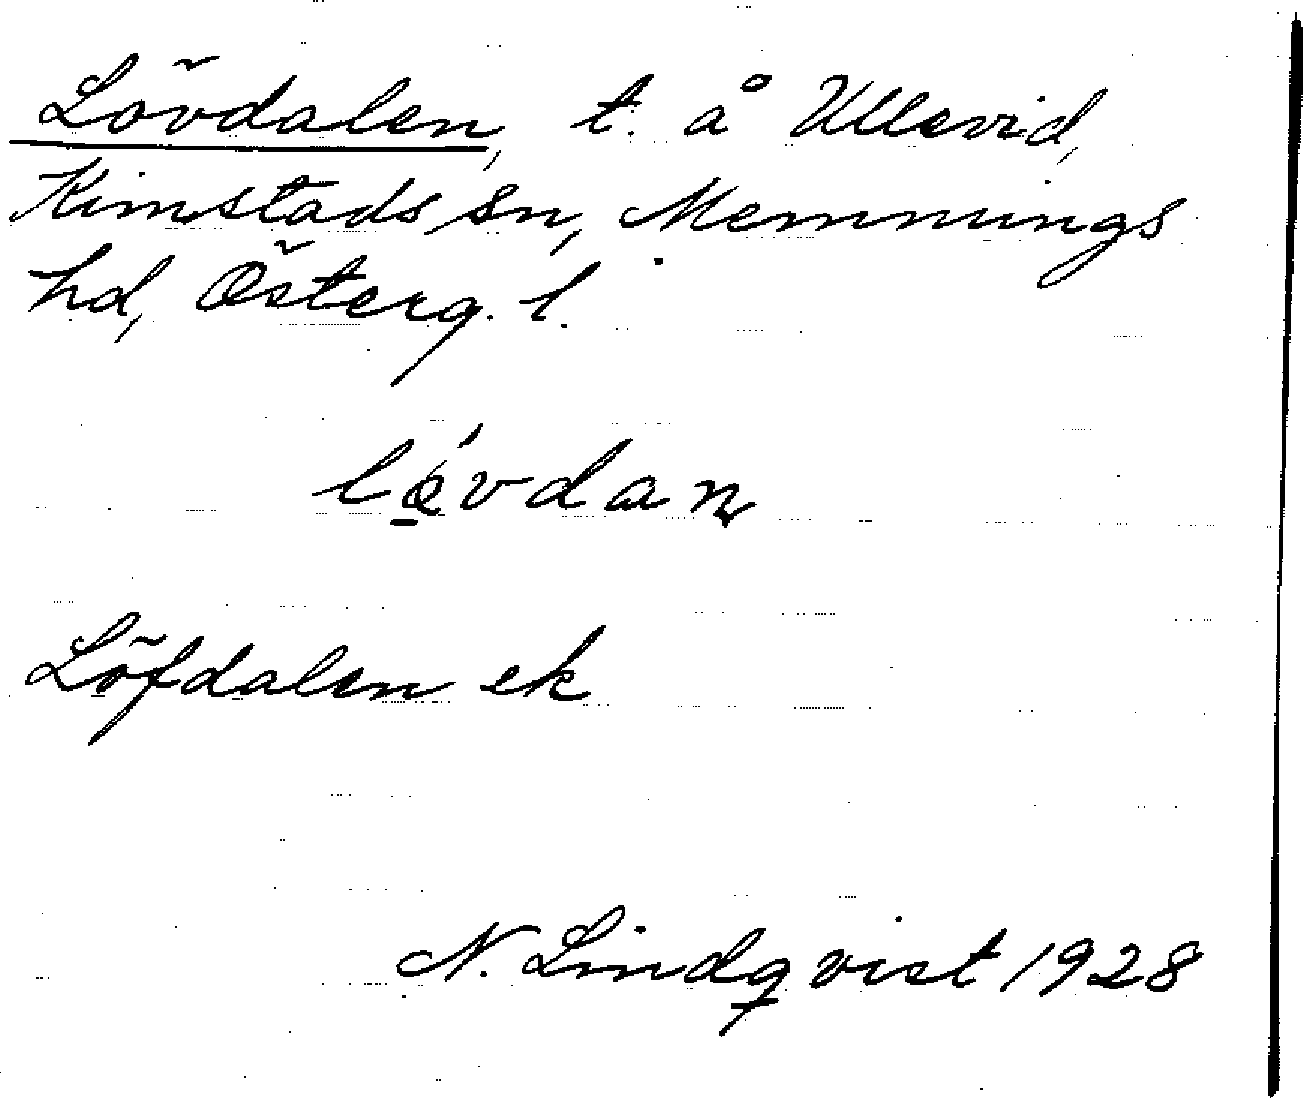 Lövdalen, t. å Ullevid,
Kimstads sn, Memmings
hd, Österg. l.
lǿ̱vdan
Löfdalen ek
N. Lindqvist 1928